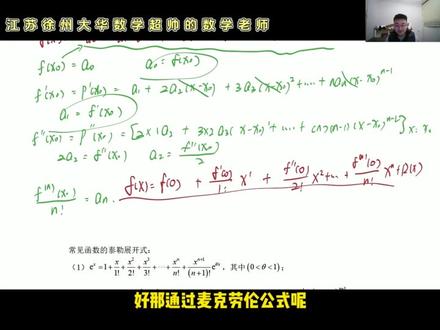 江苏徐州大华数学超帅的数学老师
f(x₀) = a₀    a₀ = f(x₀)
f'(x₀) = p'(x₀) = a₁ + 2a₂(x-x₀) + 3a₃(x-x₀)² + ... + naₙ(x-x₀)ⁿ⁻¹
a₁ = f'(x₀)
f''(x₀) = p''(x₀) = [2×1a₂ + 3×2a₃(x-x₀)' + ... + (n)(n-1)(x-x₀)ⁿ⁻²] x=x₀
2a₂ = f''(x₀)    a₂ = f''(x₀)/2
f⁽ⁿ⁾(x₀)/n! = aₙ.    f(x) = f(0) + f'(0)/1! x¹ + f''(0)/2! x² + ... + f⁽ⁿ⁾(0)/n! xⁿ + R(x)
常见函数的泰勒展开式:
(1) eˣ = 1 + x/1! + x²/2! + x³/3! + ··· + xⁿ/n! + xⁿ⁺¹/(n+1)! e^θx,其中(0<θ<1);
好那通过麦克劳伦公式呢